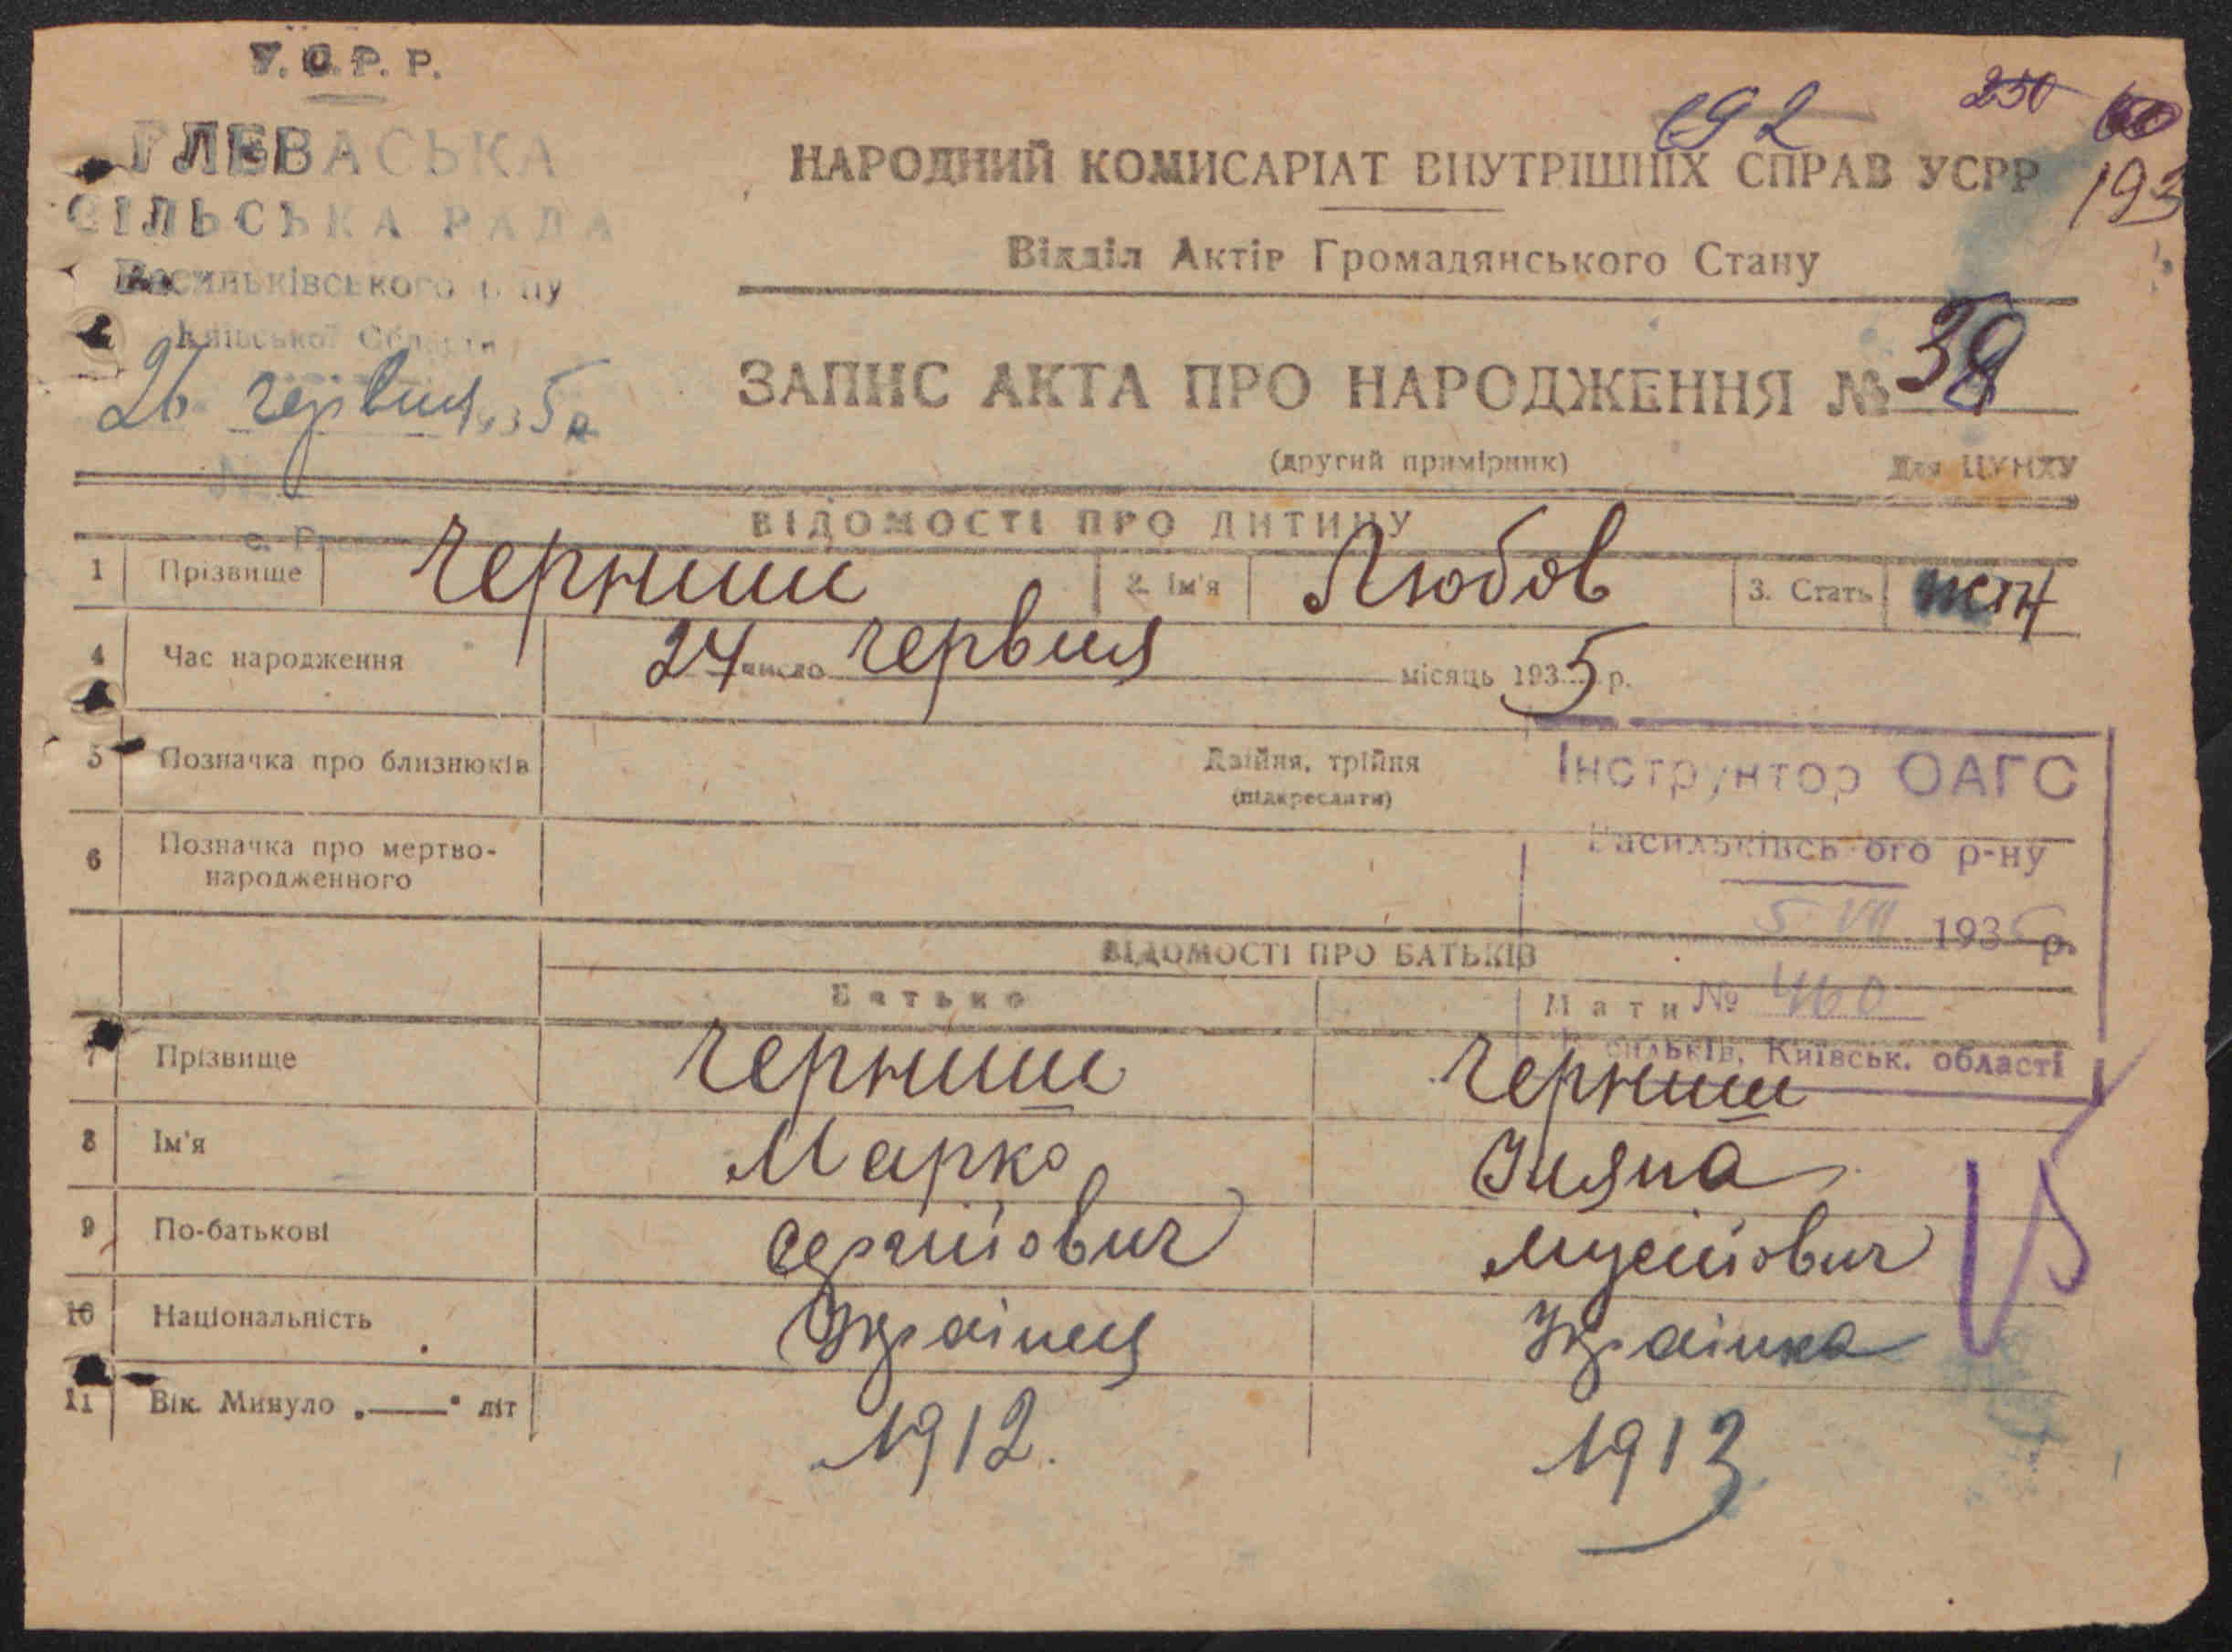 У.С.Р.Р.
ГЛЕВАСЬКА
СІЛЬСЬКА РАДА
Васильківського р ну
Київської Області
26 червня 1935 р
692
250
193
НАРОДНИЙ КОМИСАРІАТ ВНУТРІШНІХ СПРАВ УСРР
Відділ Актів Громадянського Стану
ЗАПИС АКТА ПРО НАРОДЖЕННЯ № 38
(другий примірник) Для ЦУНХУ
ВІДОМОСТІ ПРО ДИТИНУ
1 Прізвище Черниш 2. Ім'я Любов 3. Стать жін
4 Час народження 24 число червня місяць 1935 р.
5 Позначка про близнюків Двійня, трійня
(підкреслити)
6 Позначка про мертво-
народженного
Інструктор ОАГС
Васильківського р-ну
5 VII 1935 р.
№ 460
Васильків, Київськ. області
ВІДОМОСТІ ПРО БАТЬКІВ
Батько Мати
7 Прізвище Черниш Черниш
8 Ім'я Марко
9 По-батькові Сергійович мусійович
10 Національність Українець Українка
11 Вік. Минуло „——" літ 1912. 1913